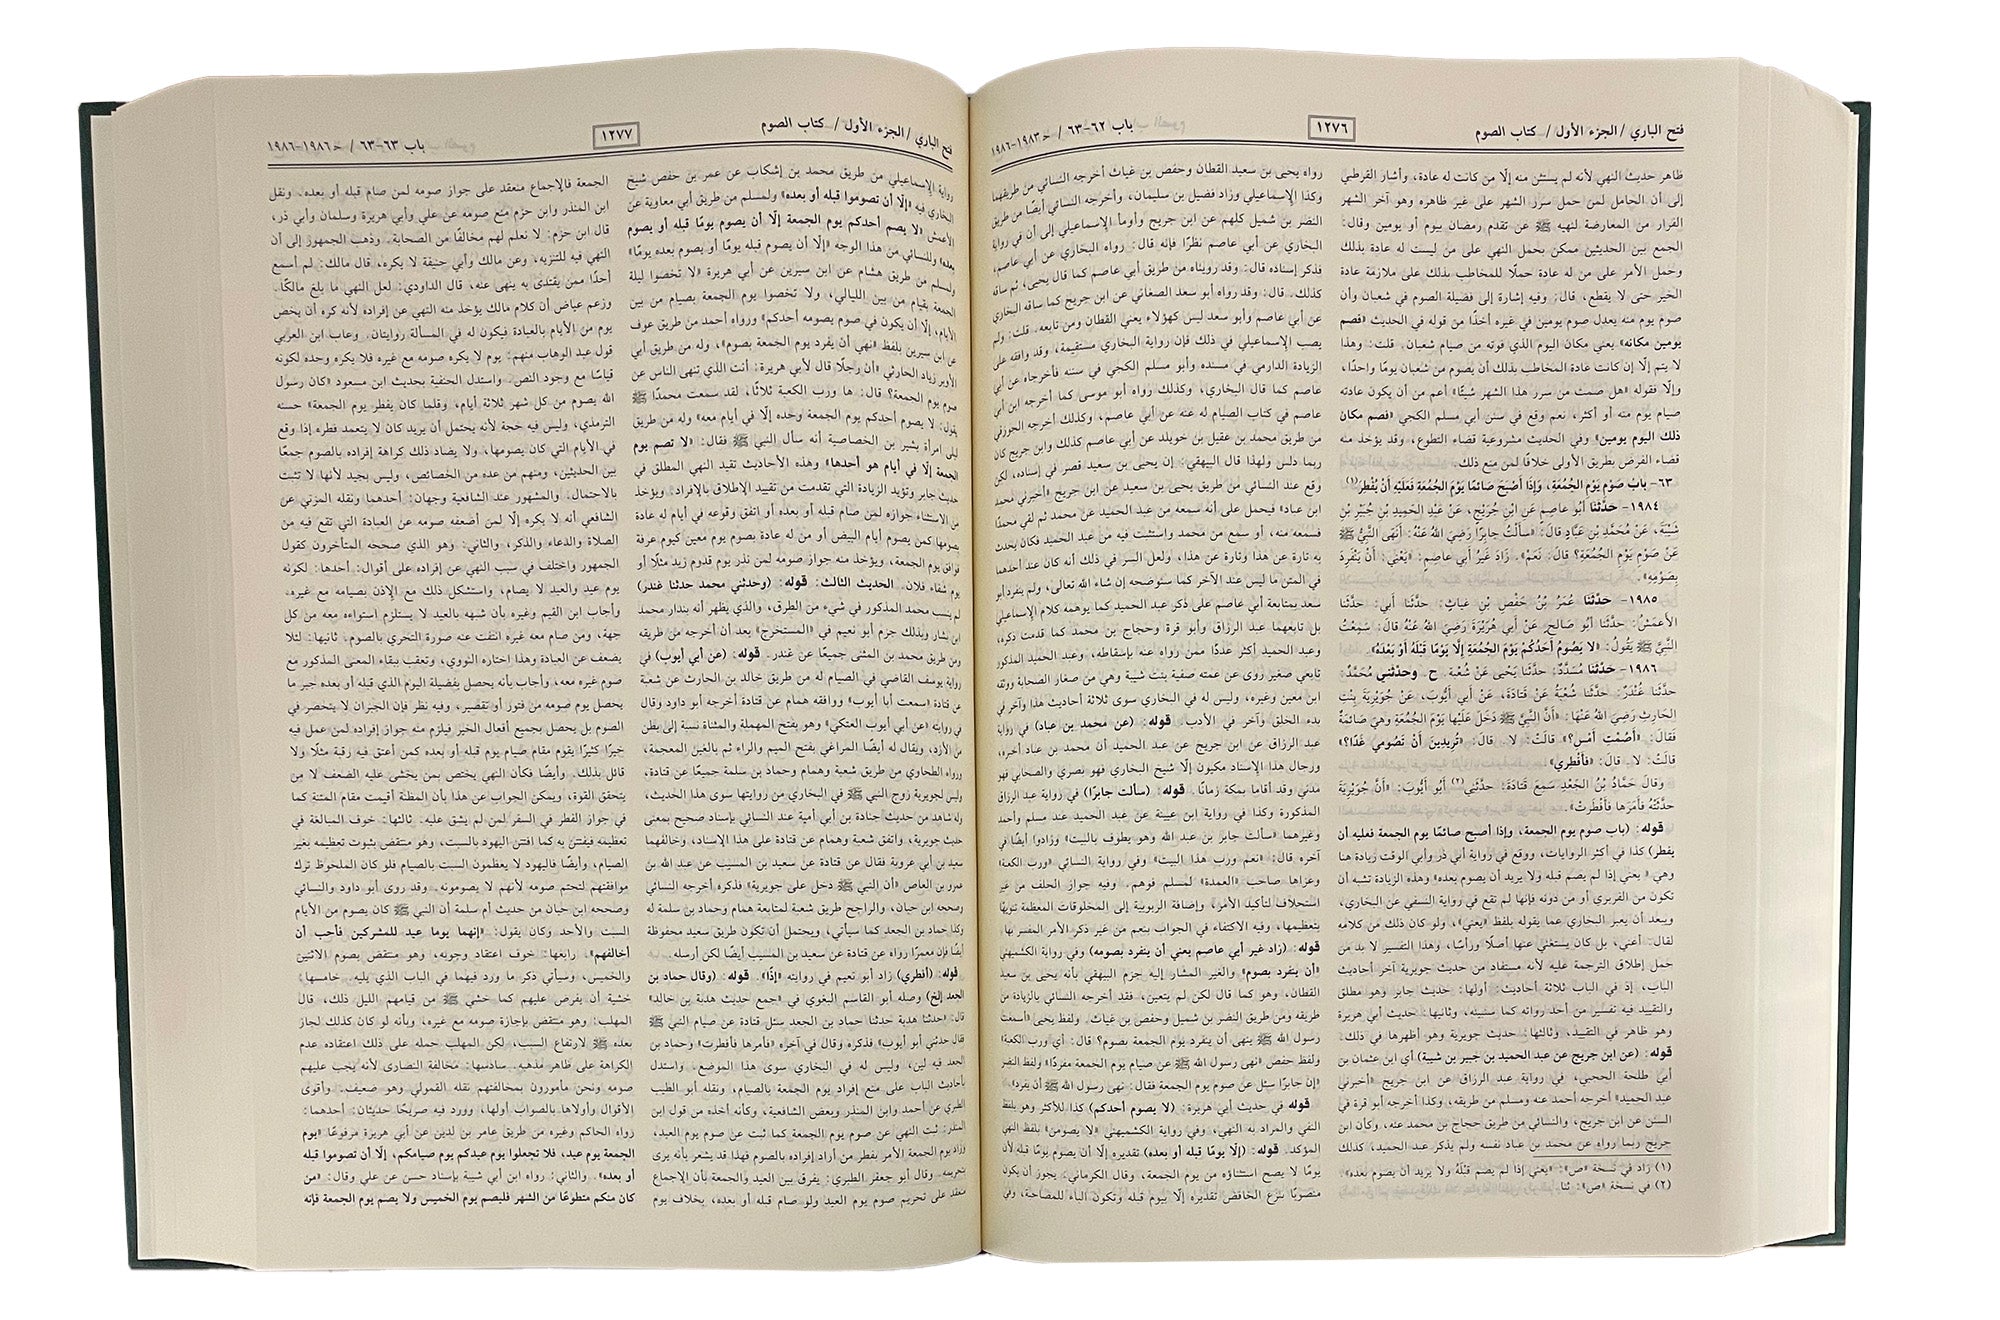 فتح الباري / الجزء الأول / كتاب الصوم
١٢٧٦
باب ٦٢-٦٣ / ح ١٩٨٣-١٩٨٦
ظاهر حديث النهي لأنه لم يستثن منه إلّا من كانت له عادة، وأشار القرطبي
إلى أن الحامل لمن حمل سرر الشهر على غير ظاهره وهو آخر الشهر
الفرار من المعارضة لنهيه ﷺ عن تقدم رمضان بيوم أو يومين وقال:
الجمع بين الحديثين ممكن بحمل النهي على من ليست له عادة بذلك
وحمل الأمر على من له عادة حملًا للمخاطب بذلك على ملازمة عادة
الخير حتى لا يقطع، قال: وفيه إشارة إلى فضيلة الصوم في شعبان وأن
صوم يوم منه يعدل صوم يومين في غيره أخذًا من قوله في الحديث «فصم
يومين مكانه» يعني مكان اليوم الذي فوته من صيام شعبان. قلت: وهذا
لا يتم إلّا إن كانت عادة المخاطب بذلك أن يصوم من شعبان يومًا واحدًا،
وإلّا فقوله «هل صمت من سرر هذا الشهر شيئًا» أعم من أن يكون عادته
صيام يوم منه أو أكثر، نعم وقع في سنن أبي مسلم الكجي «فصم مكان
ذلك اليوم يومين» وفي الحديث مشروعية قضاء التطوع، وقد يؤخذ منه
قضاء الفرض بطريق الأولى خلافًا لمن منع ذلك.
٦٣- باب صَوْمِ يَوْمِ الجُمُعَةِ، وَإِذَا أَصْبَحَ صَائمًا يَوْمَ الجُمُعَةِ فَعَلَيْهِ أَنْ يُفْطِرَ(١)
١٩٨٤- حَدَّثَنَا أَبُو عَاصِمٍ عَنِ ابْنِ جُرَيْجٍ، عَنْ عَبْدِ الْحَمِيدِ بْنِ جُبَيْرِ بْنِ
شَيْبَةَ، عَنْ مُحَمَّدِ بْنِ عَبَّادٍ قَالَ: «سَأَلْتُ جَابِرًا رَضِيَ اللهُ عَنْهُ: أَنَهَى النَّبِيُّ ﷺ
عَنْ صَوْمِ يَوْمِ الْجُمُعَةِ؟ قَالَ: نَعَمْ». زَادَ غَيْرُ أَبِي عَاصِمٍ: «يَعْنِي: أَنْ يَنْفَرِدَ
بِصَوْمِهِ»
١٩٨٥- حَدَّثَنَا عُمَرُ بْنُ حَفْصِ بْنِ غِيَاثٍ: حَدَّثَنَا أَبِي: حَدَّثَنَا
الْأَعْمَشُ: حَدَّثَنَا أَبُو صَالِحٍ عَنْ أَبِي هُرَيْرَةَ رَضِيَ اللهُ عَنْهُ قَالَ: سَمِعْتُ
النَّبِيَّ ﷺ يَقُولُ: «لا يَصُومُ أَحَدُكُمْ يَوْمَ الْجُمُعَةِ إِلَّا يَوْمًا قَبْلَهُ أَوْ بَعْدَهُ».
١٩٨٦- حَدَّثَنَا مُسَدَّدٌ: حَدَّثَنَا يَحْيَى عَنْ شُعْبَةَ. ح. وَحَدَّثَنِي مُحَمَّدٌ:
حَدَّثَنَا غُنْدَرٌ: حَدَّثَنَا شُعْبَةُ عَنْ قَتَادَةَ، عَنْ أَبِي أَيُّوبَ، عَنْ جُوَيْرِيَةَ بِنْتِ
الْحَارِثِ رَضِيَ اللهُ عَنْهَا: «أَنَّ النَّبِيَّ ﷺ دَخَلَ عَلَيْهَا يَوْمَ الْجُمُعَةِ وَهِيَ صَائِمَةٌ
فَقَالَ: «أَصُمْتِ أَمْسِ؟» قَالَتْ: لا. قَالَ: «تُرِيدِينَ أَنْ تَصُومِي غَدًا؟»
قَالَتْ: لا. قَالَ: «فَأَفْطِرِي»
وَقَالَ حَمَّادُ بْنُ الْجَعْدِ سَمِعَ قَتَادَةَ: حَدَّثَنِي(٢) أَبُو أَيُّوبَ: «أَنَّ جُوَيْرِيَةَ
حَدَّثَتْهُ فَأَمَرَهَا فَأَفْطَرَتْ».
قوله: (باب صوم يوم الجمعة، وإذا أصبح صائمًا يوم الجمعة فعليه أن
يفطر) كذا في أكثر الروايات، ووقع في رواية أبي ذر وأبي الوقت زيادة هنا
وهي «يعني إذا لم يصم قبله ولا يريد أن يصوم بعده» وهذه الزيادة تشبه أن
تكون من الفربري أو من دونه فإنها لم تقع في رواية النسفي عن البخاري،
ويبعد أن يعبر البخاري عما يقوله بلفظ «يعني»، ولو كان ذلك من كلامه
لقال: أعني، بل كان يستغني عنها أصلًا ورأسًا، وهذا التفسير لا بد من
حمل إطلاق الترجمة عليه لأنه مستفاد من حديث جويرية آخر أحاديث
الباب، إذ في الباب ثلاثة أحاديث: أولها: حديث جابر وهو مطلق
والتقييد فيه تفسير من أحد رواته كما سنبينه، وثانيها: حديث أبي هريرة
وهو ظاهر في التقييد، وثالثها: حديث جويرية وهو أظهرها في ذلك.
قوله: (عن ابن جريج عن عبد الحميد بن جبير بن شيبة) أي ابن عثمان بن
أبي طلحة الحجبي، في رواية عبد الرزاق عن ابن جريج «أخبرني
عبد الحميد» أخرجه أحمد عنه ومسلم من طريقه، وكذا أخرجه أبو قرة في
السنن عن ابن جريج، والنسائي من طريق حجاج بن محمد عنه، وكأن ابن
جريج ربما رواه عن محمد بن عباد نفسه ولم يذكر عبد الحميد، كذلك
(١) زاد في نسخة «ص»: «يعني إذا لم يصم قبله ولا يريد أن يصوم بعده».
(٢) في نسخة «ص»: ثنا.
رواه يحيى بن سعيد القطان وحفص بن غياث أخرجه النسائي من طريقهما
وكذا الإسماعيلي وزاد فضيل بن سليمان، وأخرجه النسائي أيضًا من طريق
النضر بن شميل كلهم عن ابن جريج وأومأ الإسماعيلي إلى أن في رواية
البخاري عن أبي عاصم نظرًا فإنه قال: رواه البخاري عن أبي عاصم،
فذكر إسناده قال: وقد رويناه من طريق أبي عاصم كما قال يحيى، ثم ساقه
كذلك. قال: وقد رواه أبو سعد الصغاني عن ابن جريج كما ساقه البخاري
عن أبي عاصم وأبو سعد ليس كهؤلاء يعني القطان ومن تابعه. قلت: ولم
يصب الإسماعيلي في ذلك فإن رواية البخاري مستقيمة، وقد وافقه على
الزيادة الدارمي في مسنده وأبو مسلم الكجي في سننه فأخرجاه عن أبي
عاصم كما قال البخاري، وكذلك رواه أبو موسى كما أخرجه ابن أبي
عاصم في كتاب الصيام له عنه عن أبي عاصم، وكذلك أخرجه الجوزقي
من طريق محمد بن عقيل بن خويلد عن أبي عاصم كذلك وابن جريج كان
ربما دلس ولهذا قال البيهقي: إن يحيى بن سعيد قصر في إسناده، لكن
وقع عند النسائي من طريق يحيى بن سعيد عن ابن جريج «أخبرني محمد
ابن عباد» فيحمل على أنه سمعه من عبد الحميد عن محمد ثم لقي محمدًا
فسمعه منه، أو سمع من محمد واستثبت فيه من عبد الحميد فكان يحدث
به تارة عن هذا وتارة عن هذا، ولعل السر في ذلك أنه كان عند أحدهما
في المتن ما ليس عند الآخر كما سنوضحه إن شاء الله تعالى، ولم ينفرد أبو
سعد بمتابعة أبي عاصم على ذكر عبد الحميد كما يوهمه كلام الإسماعيلي
بل تابعهما عبد الرزاق وأبو قرة وحجاج بن محمد كما قدمت ذكره،
وعبد الحميد أكثر عددًا ممن رواه عنه بإسقاطه، وعبد الحميد المذكور
تابعي صغير روى عن عمته صفية بنت شيبة وهي من صغار الصحابة ووثقه
ابن معين وغيره، وليس له في البخاري سوى ثلاثة أحاديث هذا وآخر في
بدء الخلق وآخر في الأدب. قوله: (عن محمد بن عباد) في رواية
عبد الرزاق عن ابن جريج عن عبد الحميد أن محمد بن عباد أخبره،
ورجال هذا الإسناد مكيون إلّا شيخ البخاري فهو بصري والصحابي فهو
مدني وقد أقاما بمكة زمانًا. قوله: (سألت جابرًا) في رواية عبد الرزاق
المذكورة وكذا في رواية ابن عيينة عن عبد الحميد عند مسلم وأحمد
وغيرهما «سألت جابر بن عبد الله وهو يطوف بالبيت» وزادوا أيضًا في
آخره قال: «نعم ورب هذا البيت» وفي رواية النسائي «ورب الكعبة»
وعزاها صاحب «العمدة» لمسلم فوهم. وفيه جواز الحلف من غير
استحلاف لتأكيد الأمر، وإضافة الربوبية إلى المخلوقات المعظمة تنويهًا
بتعظيمها، وفيه الاكتفاء في الجواب بنعم من غير ذكر الأمر المفسر بها.
قوله: (زاد غير أبي عاصم يعني أن ينفرد بصومه) وفي رواية الكشميهني
«أن ينفرد بصوم» والغير المشار إليه جزم البيهقي بأنه يحيى بن سعيد
القطان، وهو كما قال لكن لم يتعين، فقد أخرجه النسائي بالزيادة من
طريقه ومن طريق النضر بن شميل وحفص بن غياث. ولفظ يحيى «أسمعت
رسول الله ﷺ ينهى أن ينفرد يوم الجمعة بصوم؟ قال: أي ورب الكعبة»
ولفظ حفص «نهى رسول الله ﷺ عن صيام يوم الجمعة مفردًا» ولفظ النضر
«إن جابرًا سئل عن صوم يوم الجمعة فقال: نهى رسول الله ﷺ أن يفرد»
قوله في حديث أبي هريرة: (لا يصوم أحدكم) كذا للأكثر وهو بلفظ
النفي والمراد به النهي، وفي رواية الكشميهني «لا يصومن» بلفظ النهي
المؤكد. قوله: (إلّا يومًا قبله أو بعده) تقديره إلّا أن يصوم يومًا قبله لأن
يومًا لا يصح استثناؤه من يوم الجمعة، وقال الكرماني: يجوز أن يكون
منصوبًا بنزع الخافض تقديره إلّا بيوم قبله وتكون الباء للمصاحبة، وفي
فتح الباري / الجزء الأول / كتاب الصوم
١٢٧٧
باب ٦٣-٦٣ / ح ١٩٨٦-١٩٨٦
رواية الإسماعيلي من طريق محمد بن إشكاب عن عمر بن حفص شيخ
البخاري فيه «إلّا أن تصوموا قبله أو بعده» ولمسلم من طريق أبي معاوية عن
الأعمش «لا يصم أحدكم يوم الجمعة إلّا أن يصوم يومًا قبله أو يصوم
بعده» وللنسائي من هذا الوجه «إلّا أن يصوم قبله يومًا أو يصوم بعده يومًا»
ولمسلم من طريق هشام عن ابن سيرين عن أبي هريرة «لا تخصوا ليلة
الجمعة بقيام من بين الليالي، ولا تخصوا يوم الجمعة بصيام من بين
الأيام، إلّا أن يكون في صوم يصومه أحدكم» ورواه أحمد من طريق عوف
عن ابن سيرين بلفظ «نهى أن يفرد يوم الجمعة بصوم»، وله من طريق أبي
الأوبر زياد الحارثي «أن رجلًا قال لأبي هريرة: أنت الذي تنهى الناس عن
صوم يوم الجمعة؟ قال: ها ورب الكعبة ثلاثًا، لقد سمعت محمدًا ﷺ
يقول: لا يصوم أحدكم يوم الجمعة وحده إلّا في أيام معه» وله من طريق
ليلى امرأة بشير بن الخصاصية أنه سأل النبي ﷺ فقال: «لا تصم يوم
الجمعة إلّا في أيام هو أحدها» وهذه الأحاديث تقيد النهي المطلق في
حديث جابر وتؤيد الزيادة التي تقدمت من تقييد الإطلاق بالإفراد، ويؤخذ
من الاستثناء جوازه لمن صام قبله أو بعده أو اتفق وقوعه في أيام له عادة
بصومها كمن يصوم أيام البيض أو من له عادة بصوم يوم معين كيوم عرفة
فوافق يوم الجمعة، ويؤخذ منه جواز صومه لمن نذر يوم قدوم زيد مثلًا أو
يوم شفاء فلان. الحديث الثالث: قوله: (وحدثني محمد حدثنا غندر)
لم ينسب محمد المذكور في شيء من الطرق، والذي يظهر أنه بندار محمد
ابن بشار وبذلك جزم أبو نعيم في «المستخرج» بعد أن أخرجه من طريقه
ومن طريق محمد بن المثنى جميعًا عن غندر. قوله: (عن أبي أيوب) في
رواية يوسف القاضي في الصيام له من طريق خالد بن الحارث عن شعبة
عن قتادة «سمعت أبا أيوب» ووافقه همام عن قتادة أخرجه أبو داود وقال
في روايته «عن أبي أيوب العتكي» وهو بفتح المهملة والمثناة نسبة إلى بطن
من الأزد، ويقال له أيضًا المراغي بفتح الميم والراء ثم بالغين المعجمة،
ورواه الطحاوي من طريق شعبة وهمام وحماد بن سلمة جميعًا عن قتادة،
وليس لجويرية زوج النبي ﷺ في البخاري من روايتها سوى هذا الحديث،
وله شاهد من حديث جنادة بن أبي أمية عند النسائي بإسناد صحيح بمعنى
حديث جويرية، واتفق شعبة وهمام عن قتادة على هذا الإسناد، وخالفهما
سعيد بن أبي عروبة فقال عن قتادة عن سعيد بن المسيب عن عبد الله بن
عمرو بن العاص «أن النبي ﷺ دخل على جويرية» فذكره أخرجه النسائي
وصححه ابن حبان، والراجح طريق شعبة لمتابعة همام وحماد بن سلمة له
وكذا حماد بن الجعد كما سيأتي، ويحتمل أن تكون طريق سعيد محفوظة
أيضًا فإن معمرًا رواه عن قتادة عن سعيد بن المسيب أيضًا لكن أرسله.
قوله: (أفطري) زاد أبو نعيم في روايته «إذًا». قوله: (وقال حماد بن
الجعد إلخ) وصله أبو القاسم البغوي في «جمع حديث هدبة بن خالد»
قال: «حدثنا هدبة حدثنا حماد بن الجعد سئل قتادة عن صيام النبي ﷺ
فقال حدثني أبو أيوب» فذكره وقال في آخره «فأمرها فأفطرت» وحماد بن
الجعد فيه لين، وليس له في البخاري سوى هذا الموضع. واستدل
بأحاديث الباب على منع إفراد يوم الجمعة بالصيام، ونقله أبو الطيب
الطبري عن أحمد وابن المنذر وبعض الشافعية، وكأنه أخذه من قول ابن
المنذر: ثبت النهي عن صوم يوم الجمعة كما ثبت عن صوم يوم العيد،
وزاد يوم الجمعة الأمر بفطر من أراد إفراده بالصوم فهذا قد يشعر بأنه يرى
بتحريمه. وقال أبو جعفر الطبري: يفرق بين العيد والجمعة بأن الإجماع
منعقد على تحريم صوم يوم العيد ولو صام قبله أو بعده، بخلاف يوم
الجمعة فالإجماع منعقد على جواز صومه لمن صام قبله أو بعده. ونقل
ابن المنذر وابن حزم منع صومه عن علي وأبي هريرة وسلمان وأبي ذر،
قال ابن حزم: لا نعلم لهم مخالفًا من الصحابة. وذهب الجمهور إلى أن
النهي فيه للتنزيه، وعن مالك وأبي حنيفة لا يكره، قال مالك: لم أسمع
أحدًا ممن يقتدى به ينهى عنه، قال الداودي: لعل النهي ما بلغ مالكًا.
وزعم عياض أن كلام مالك يؤخذ منه النهي عن إفراده لأنه كره أن يخص
يوم من الأيام بالعبادة فيكون له في المسألة روايتان. وعاب ابن العربي
قول عبد الوهاب منهم: يوم لا يكره صومه مع غيره فلا يكره وحده لكونه
قياسًا مع وجود النص. واستدل الحنفية بحديث ابن مسعود «كان رسول
الله يصوم من كل شهر ثلاثة أيام، وقلما كان يفطر يوم الجمعة» حسنه
الترمذي، وليس فيه حجة لأنه يحتمل أن يريد كان لا يتعمد فطره إذا وقع
في الأيام التي كان يصومها، ولا يضاد ذلك كراهة إفراده بالصوم جمعًا
بين الحديثين، ومنهم من عده من الخصائص، وليس بجيد لأنها لا تثبت
بالاحتمال. والمشهور عند الشافعية وجهان: أحدهما ونقله المزني عن
الشافعي أنه لا يكره إلّا لمن أضعفه صومه عن العبادة التي تقع فيه من
الصلاة والدعاء والذكر، والثاني: وهو الذي صححه المتأخرون كقول
الجمهور واختلف في سبب النهي عن إفراده على أقوال: أحدها: لكونه
يوم عيد والعيد لا يصام، واستشكل ذلك مع الإذن بصيامه مع غيره،
وأجاب ابن القيم وغيره بأن شبهه بالعيد لا يستلزم استواءه معه من كل
جهة، ومن صام معه غيره انتفت عنه صورة التحري بالصوم. ثانيها: لئلا
يضعف عن العبادة وهذا اختاره النووي، وتعقب ببقاء المعنى المذكور مع
صوم غيره معه، وأجاب بأنه يحصل بفضيلة اليوم الذي قبله أو بعده جبر ما
يحصل يوم صومه من فتور أو تقصير، وفيه نظر فإن الجبران لا ينحصر في
الصوم بل يحصل بجميع أفعال الخير فيلزم منه جواز إفراده لمن عمل فيه
خيرًا كثيرًا يقوم مقام صيام يوم قبله أو بعده كمن أعتق فيه رقبة مثلًا ولا
قائل بذلك. وأيضًا فكأن النهي يختص بمن يخشى عليه الضعف لا من
يتحقق القوة، ويمكن الجواب عن هذا بأن المظنة أقيمت مقام المئنة كما
في جواز الفطر في السفر لمن لم يشق عليه. ثالثها: خوف المبالغة في
تعظيمه فيفتتن به كما افتتن اليهود بالسبت، وهو منتقض بثبوت تعظيمه بغير
الصيام، وأيضًا فاليهود لا يعظمون السبت بالصيام فلو كان الملحوظ ترك
موافقتهم لتحتم صومه لأنهم لا يصومونه، وقد روى أبو داود والنسائي
وصححه ابن حبان من حديث أم سلمة أن النبي ﷺ كان يصوم من الأيام
السبت والأحد وكان يقول: «إنهما يوما عيد للمشركين فأحب أن
أخالفهم». رابعها: خوف اعتقاد وجوبه، وهو منتقض بصوم الاثنين
والخميس، وسيأتي ذكر ما ورد فيهما في الباب الذي يليه. خامسها:
خشية أن يفرض عليهم كما خشي ﷺ من قيامهم الليل ذلك، قال
المهلب: وهو منتقض بإجازة صومه مع غيره، وبأنه لو كان كذلك لجاز
بعده ﷺ لارتفاع السبب، لكن المهلب حمله على ذلك اعتقاده عدم
الكراهة على ظاهر مذهبه. سادسها: مخالفة النصارى لأنه يجب عليهم
صومه ونحن مأمورون بمخالفتهم نقله القمولي وهو ضعيف. وأقوى
الأقوال وأولاها بالصواب أولها، وورد فيه صريحًا حديثان: أحدهما:
رواه الحاكم وغيره من طريق عامر بن لدين عن أبي هريرة مرفوعًا «يوم
الجمعة يوم عيد، فلا تجعلوا يوم عيدكم يوم صيامكم، إلّا أن تصوموا قبله
أو بعده». والثاني: رواه ابن أبي شيبة بإسناد حسن عن علي وقال: «من
كان منكم متطوعًا من الشهر فليصم يوم الخميس ولا يصم يوم الجمعة فإنه